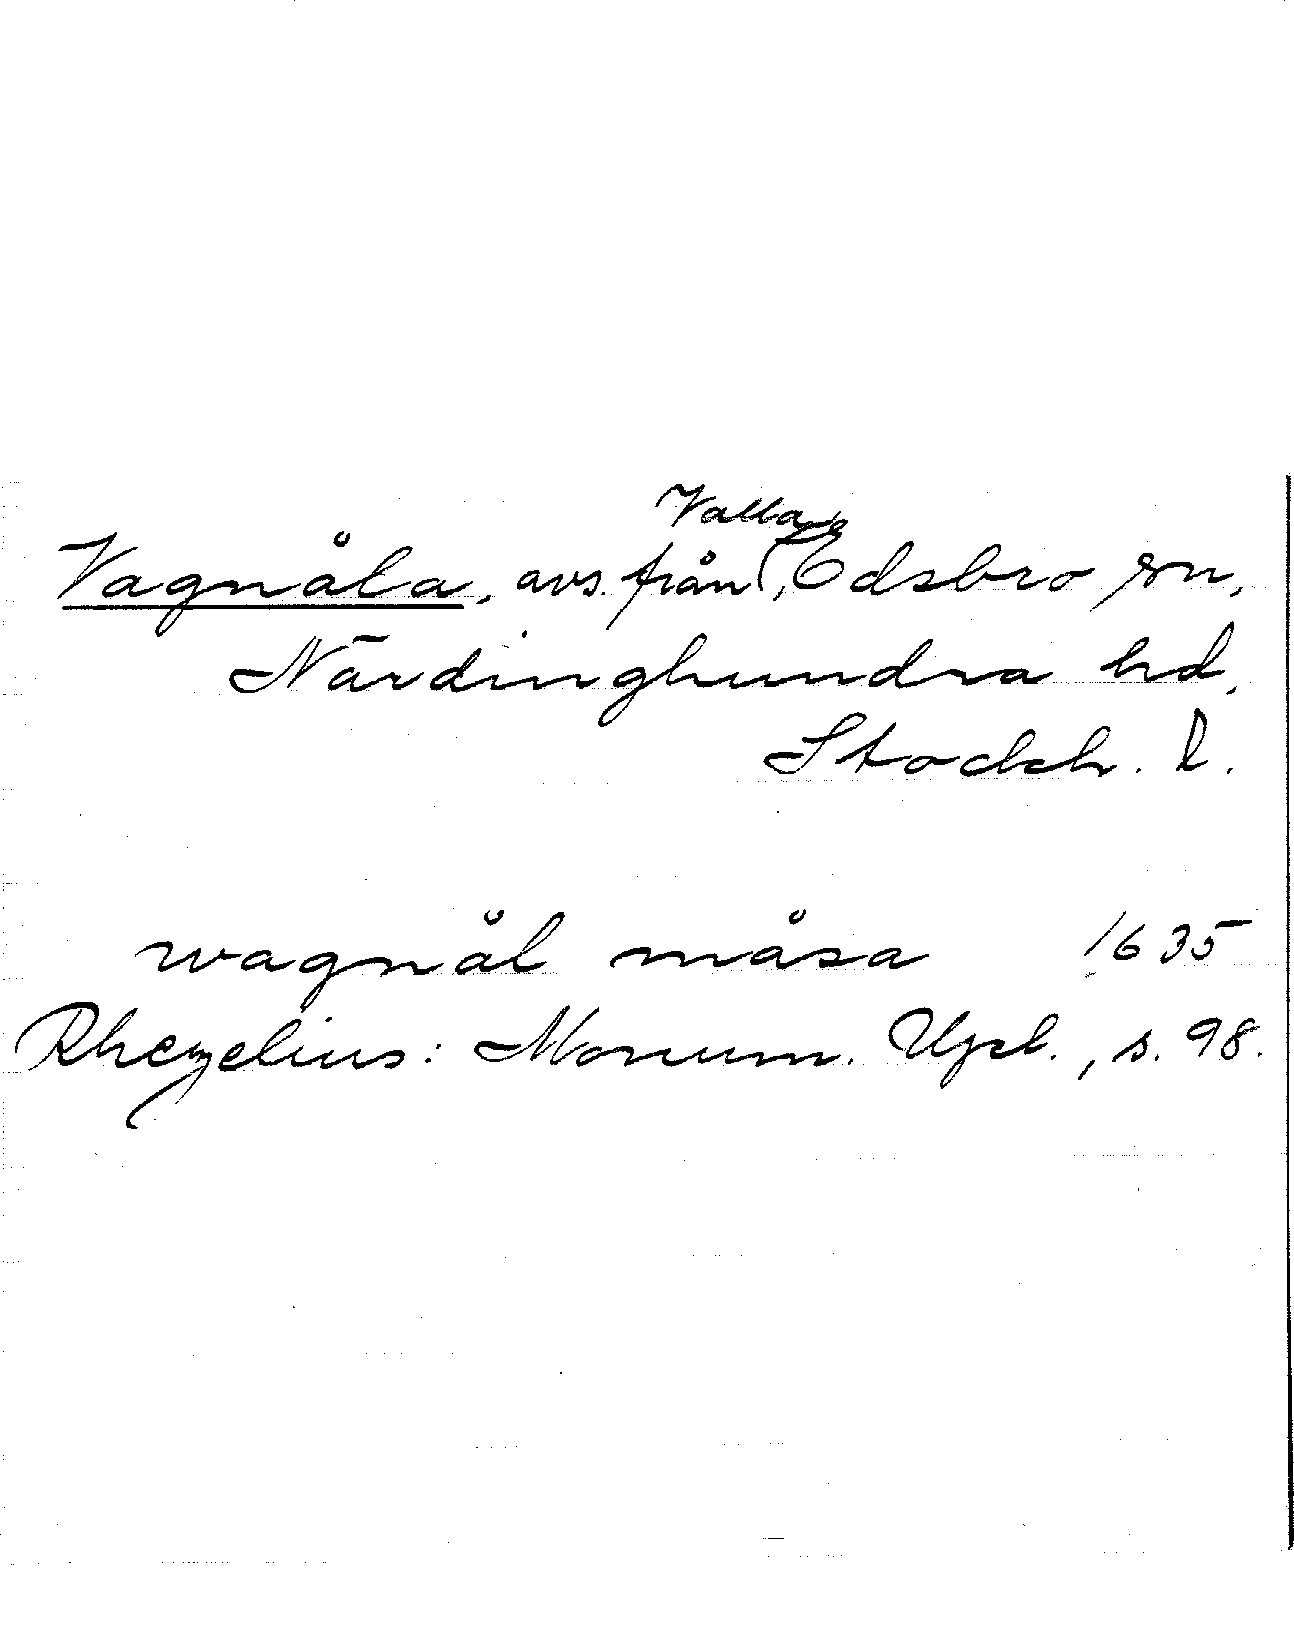 Vagnåla, avs. från Valla, Edsbro sn,
Närdinghundra hd,
Stockh. l.
wagnål måsa 1635
Rhezelius: Monum. Upl., s. 98.